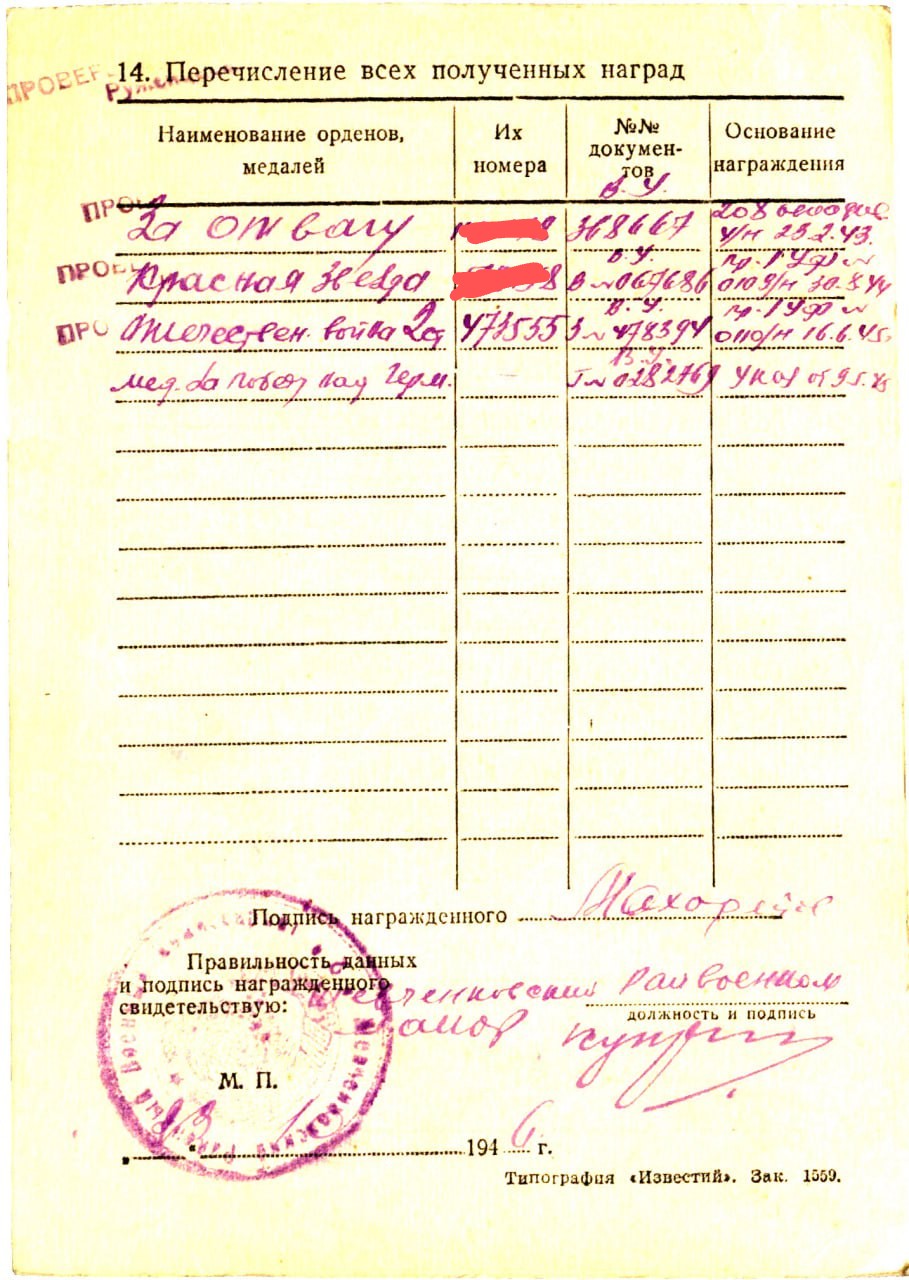 ПРОВЕР
14. Перечисление всех полученных наград
Наименование орденов, медалей
Их номера
№№ документов
Основание награждения
В. У.
ПРО
За отвагу
368667
ч/н 23.2.43.
ПРОВЕ
Красная Звезда
В. У.
В № 067686
30.8.44
ПРО
Отечествен. война 2 ст
473555
В. У.
№ 478394
16.6.45
мед. За победу над Герм.
В. У.
Г № 0282769
от 9.5.45
Подпись награжденного
Правильность данных
и подпись награжденного
свидетельствую:
Райвоенком
должность и подпись
майор
М. П.
„ “ 1946 г.
Типография «Известий». Зак. 1559.